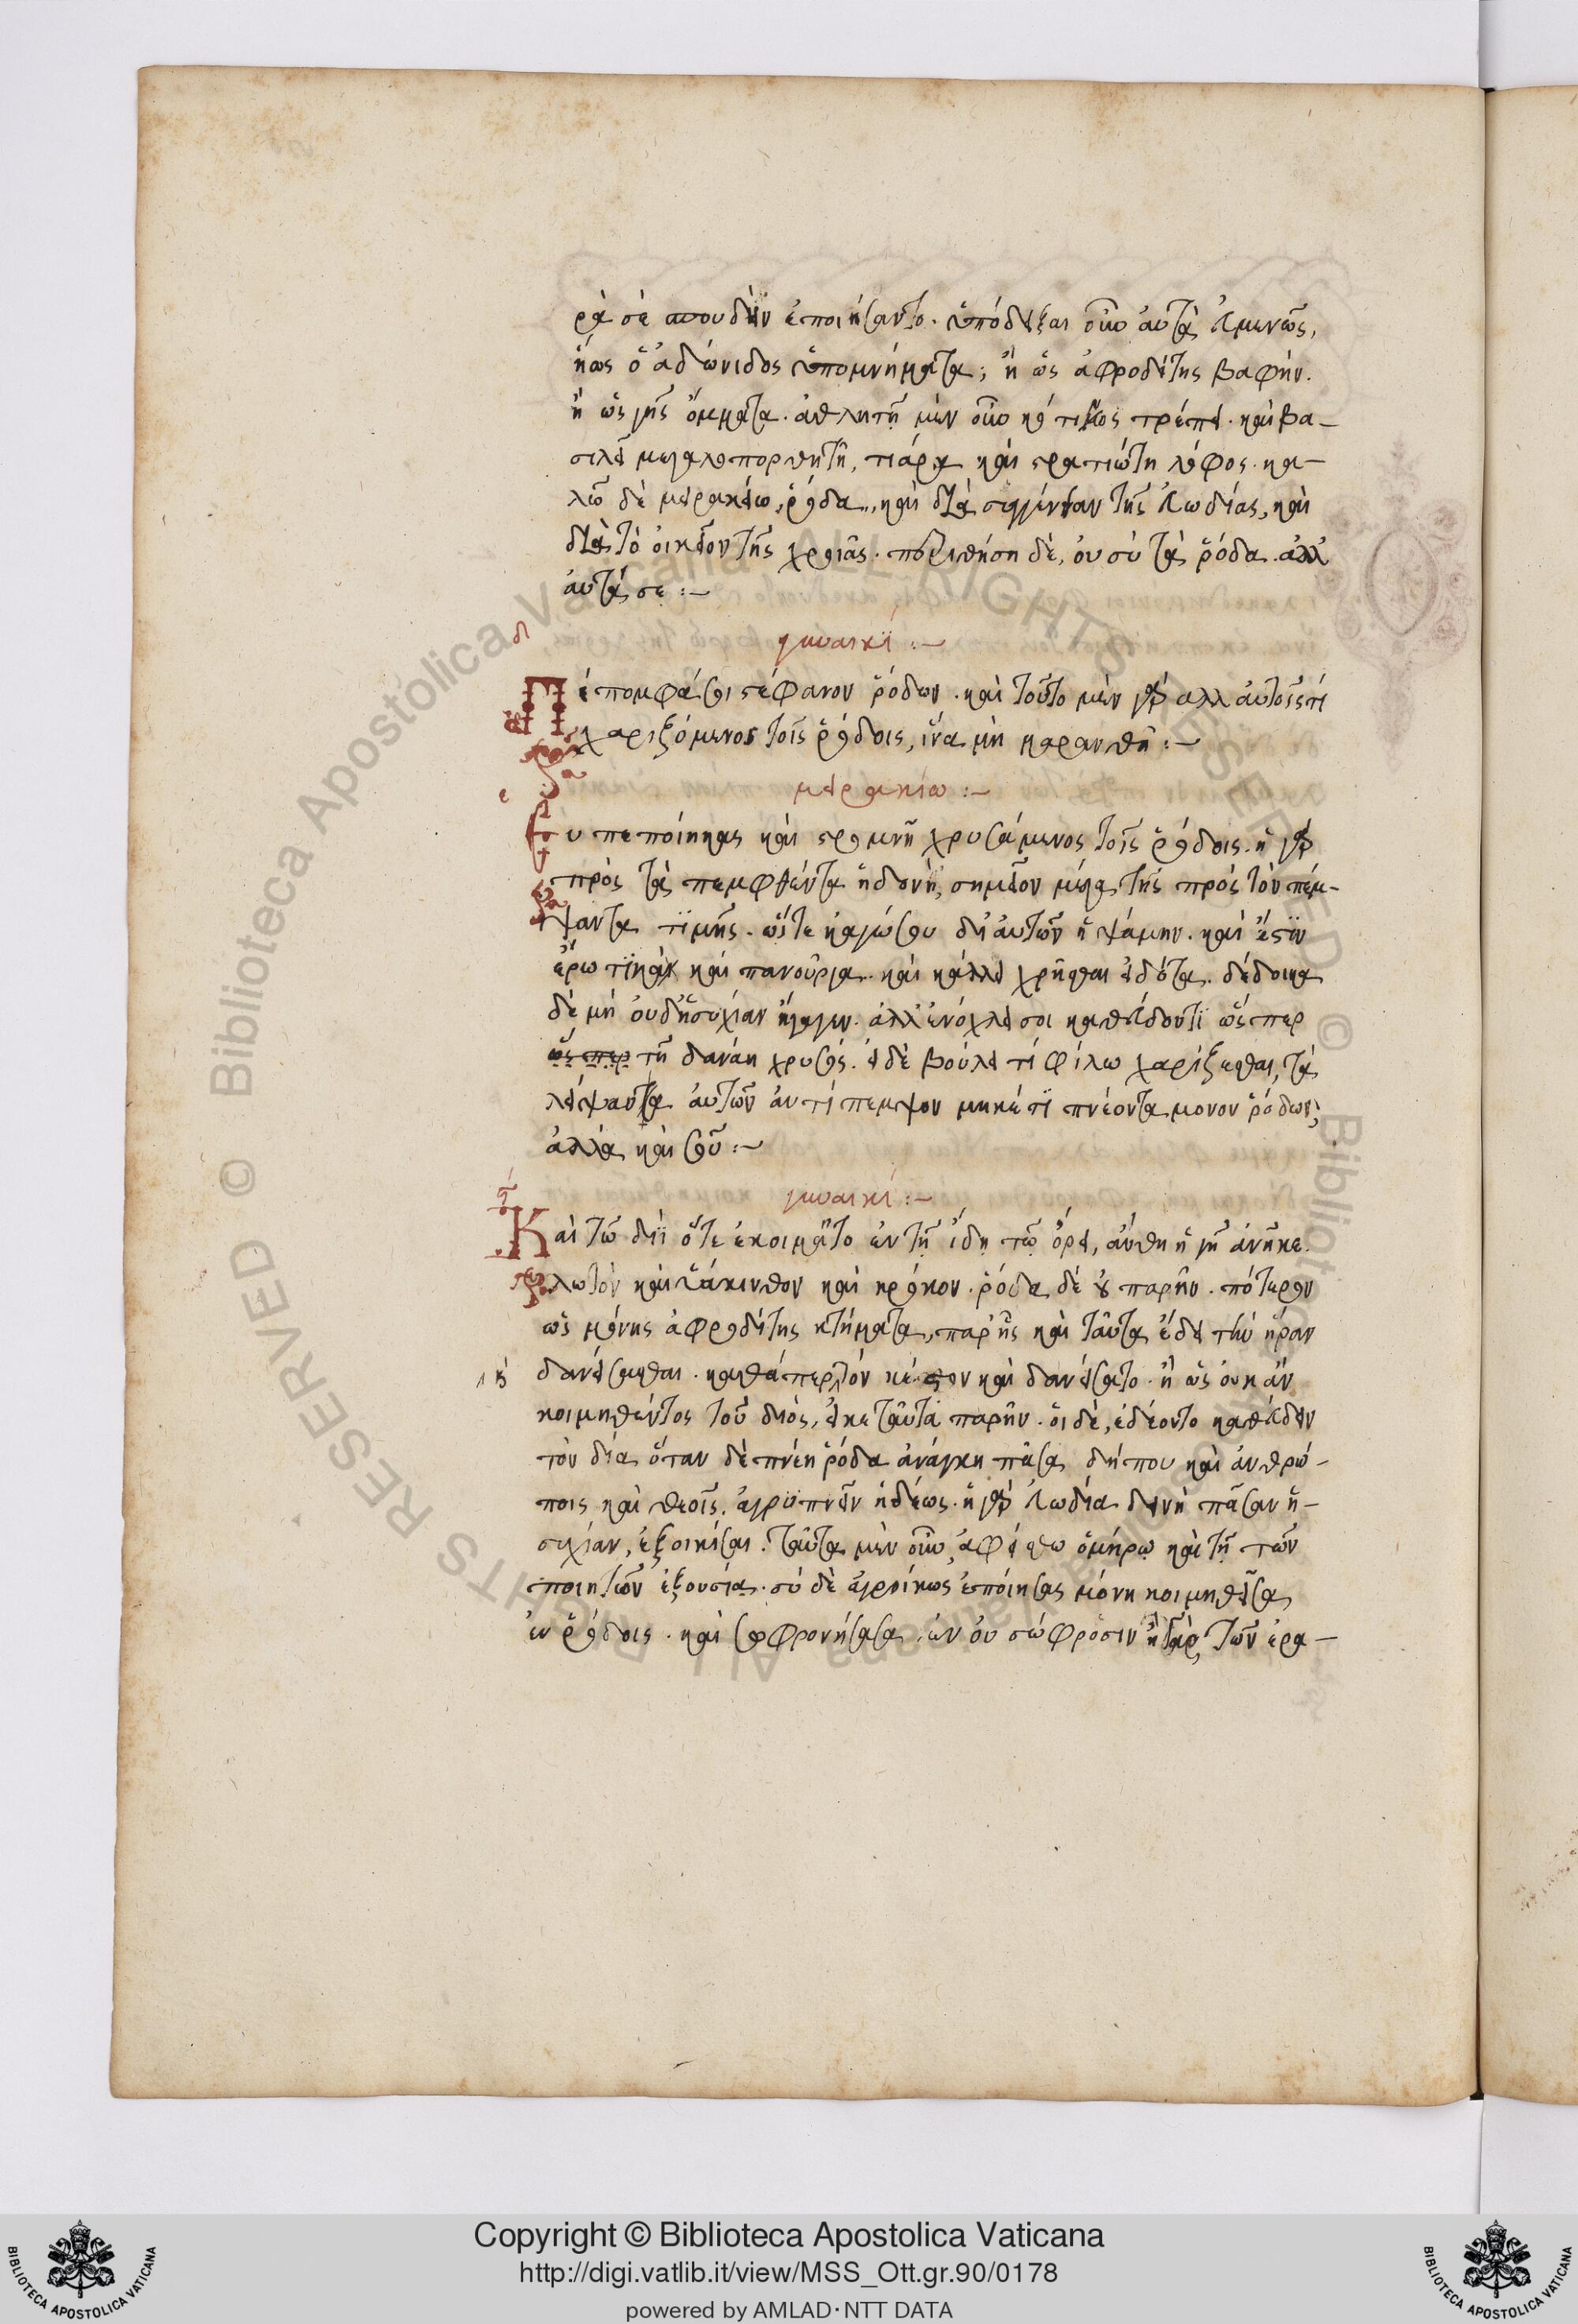 ρὰ σὲ σπουδὴν ἐποιήσαντο. ὑπόδεξαι οὖν αὐτὰ εὐμενῶς,
ἤως ὁ ἀδώνιδος ὑπομνήματα; ἢ ὡς ἀφροδίτης βαφήν.
ἢ ὡς γῆς ὄμματα. ἀθλητῇ μὲν οὖν κότινος πρέπει. καὶ βα-
σιλεῖ μεγαλοπορθητῇ, τιάρα καὶ στρατιώτη λόφος. κα-
λῶ δὲ μειρακίω, ῥόδα, καὶ διὰ συγγένειαν τῆς εὐωδίας, καὶ
διὰ τὸ οἰκεῖον τῆς χροιᾶς. περιθήση δὲ, οὐ σὺ τὰ ῥόδα. ἀλλ
αὐτά σε :-
δ
γυναικί :-
Πέπομφά σοι στέφανον ῥόδων. καὶ τοῦτο μὲν γὰρ ἀλλ αὐτοῖς τί
χαριζόμενος τοῖς ῥόδοις, ἵνα μὴ μαρανθῆ :-
ε
μειρακίω :-
Εὖ πεποίηκας καὶ στρομνῆ χρυσάμενος τοῖς ῥόδοις. ἡ γὰρ
πρὸς τὰ πεμφθέντα ἡδονὴ, σημεῖον μέγα τῆς πρὸς τὸν πέμ-
ψαντα τϊμῆς. ὥστε καγώ σου δι αὐτῶν ἡψάμην. καὶ ἔστϊν
ἐρωτϊκὰ καὶ πανοῦργα. καὶ κάλλει χρῆσθαι εἰδότα. δέδοικα
δὲ μὴ οὐδ ἡσυχίαν ἤγαγεν. ἀλλ ἐνόχλει σοι καθεύδοντϊ ὥσπερ
ὥσπερ τῆ δανάη χρυσός. εἰ δὲ βούλει τί φίλω χαρίζεσθαι, τὰ
λείψαντα αὐτῶν ἀντίπεμψον μηκέτϊ πνέοντα μονον ῥόδων,
ἀλλὰ καὶ σοῦ :-
ϛ
γυναικί :-
Καὶ τῶ διῒ ὅτε ἐκοιμᾶτο ἐν τῆ ἴδη τῶ ὄρει, ἄνθη ἡ γῆ ἀνῆκε.
λωτὸν καὶ ὑάκινθον καὶ κρόκον. ῥόδα δὲ οὐ παρῆν. πότερον
ὡς μόνης ἀφροδίτης κτήματα, παρ ἧς καὶ ταῦτα ἔδει τὴν ἥραν
δανείσασθαι. καθάπερ τὸν κεστον καὶ δανείσατο. ἢ ὡς οὐκ ἂν
κοιμηθέντος τοῦ διός, εἴκε ταῦτα παρῆν. οἱ δὲ, ἐδέοντο καθεύδειν
τὸν δία ὅταν δὲ πνέη ῥόδα ἀνάγκη πᾶσα δήπου καὶ ἀνθρώ-
ποις καὶ θεοῖς, ἀγρϋπνεῖν ἡδέως. ἡ γὰρ εὐωδία δεινὴ πᾶσαν ἡ-
συχίαν, ἐξοικίσαι. ταῦτα μὲν οὖν, ἀφείσθω ὁμήρῳ καὶ τῆ τῶν
ποιητῶν ἐξουσία. σὺ δὲ ἀγροίκως ἐποίησας μόνη κοιμηθεῖσα
ἐν ῥόδοις. καὶ σωφρονήσασα ἐν οὐ σώφροσιν ἢ γὰρ τῶν ἐρα-
Copyright © Biblioteca Apostolica Vaticana
http://digi.vatlib.it/view/MSS_Ott.gr.90/0178
powered by AMLAD·NTT DATA